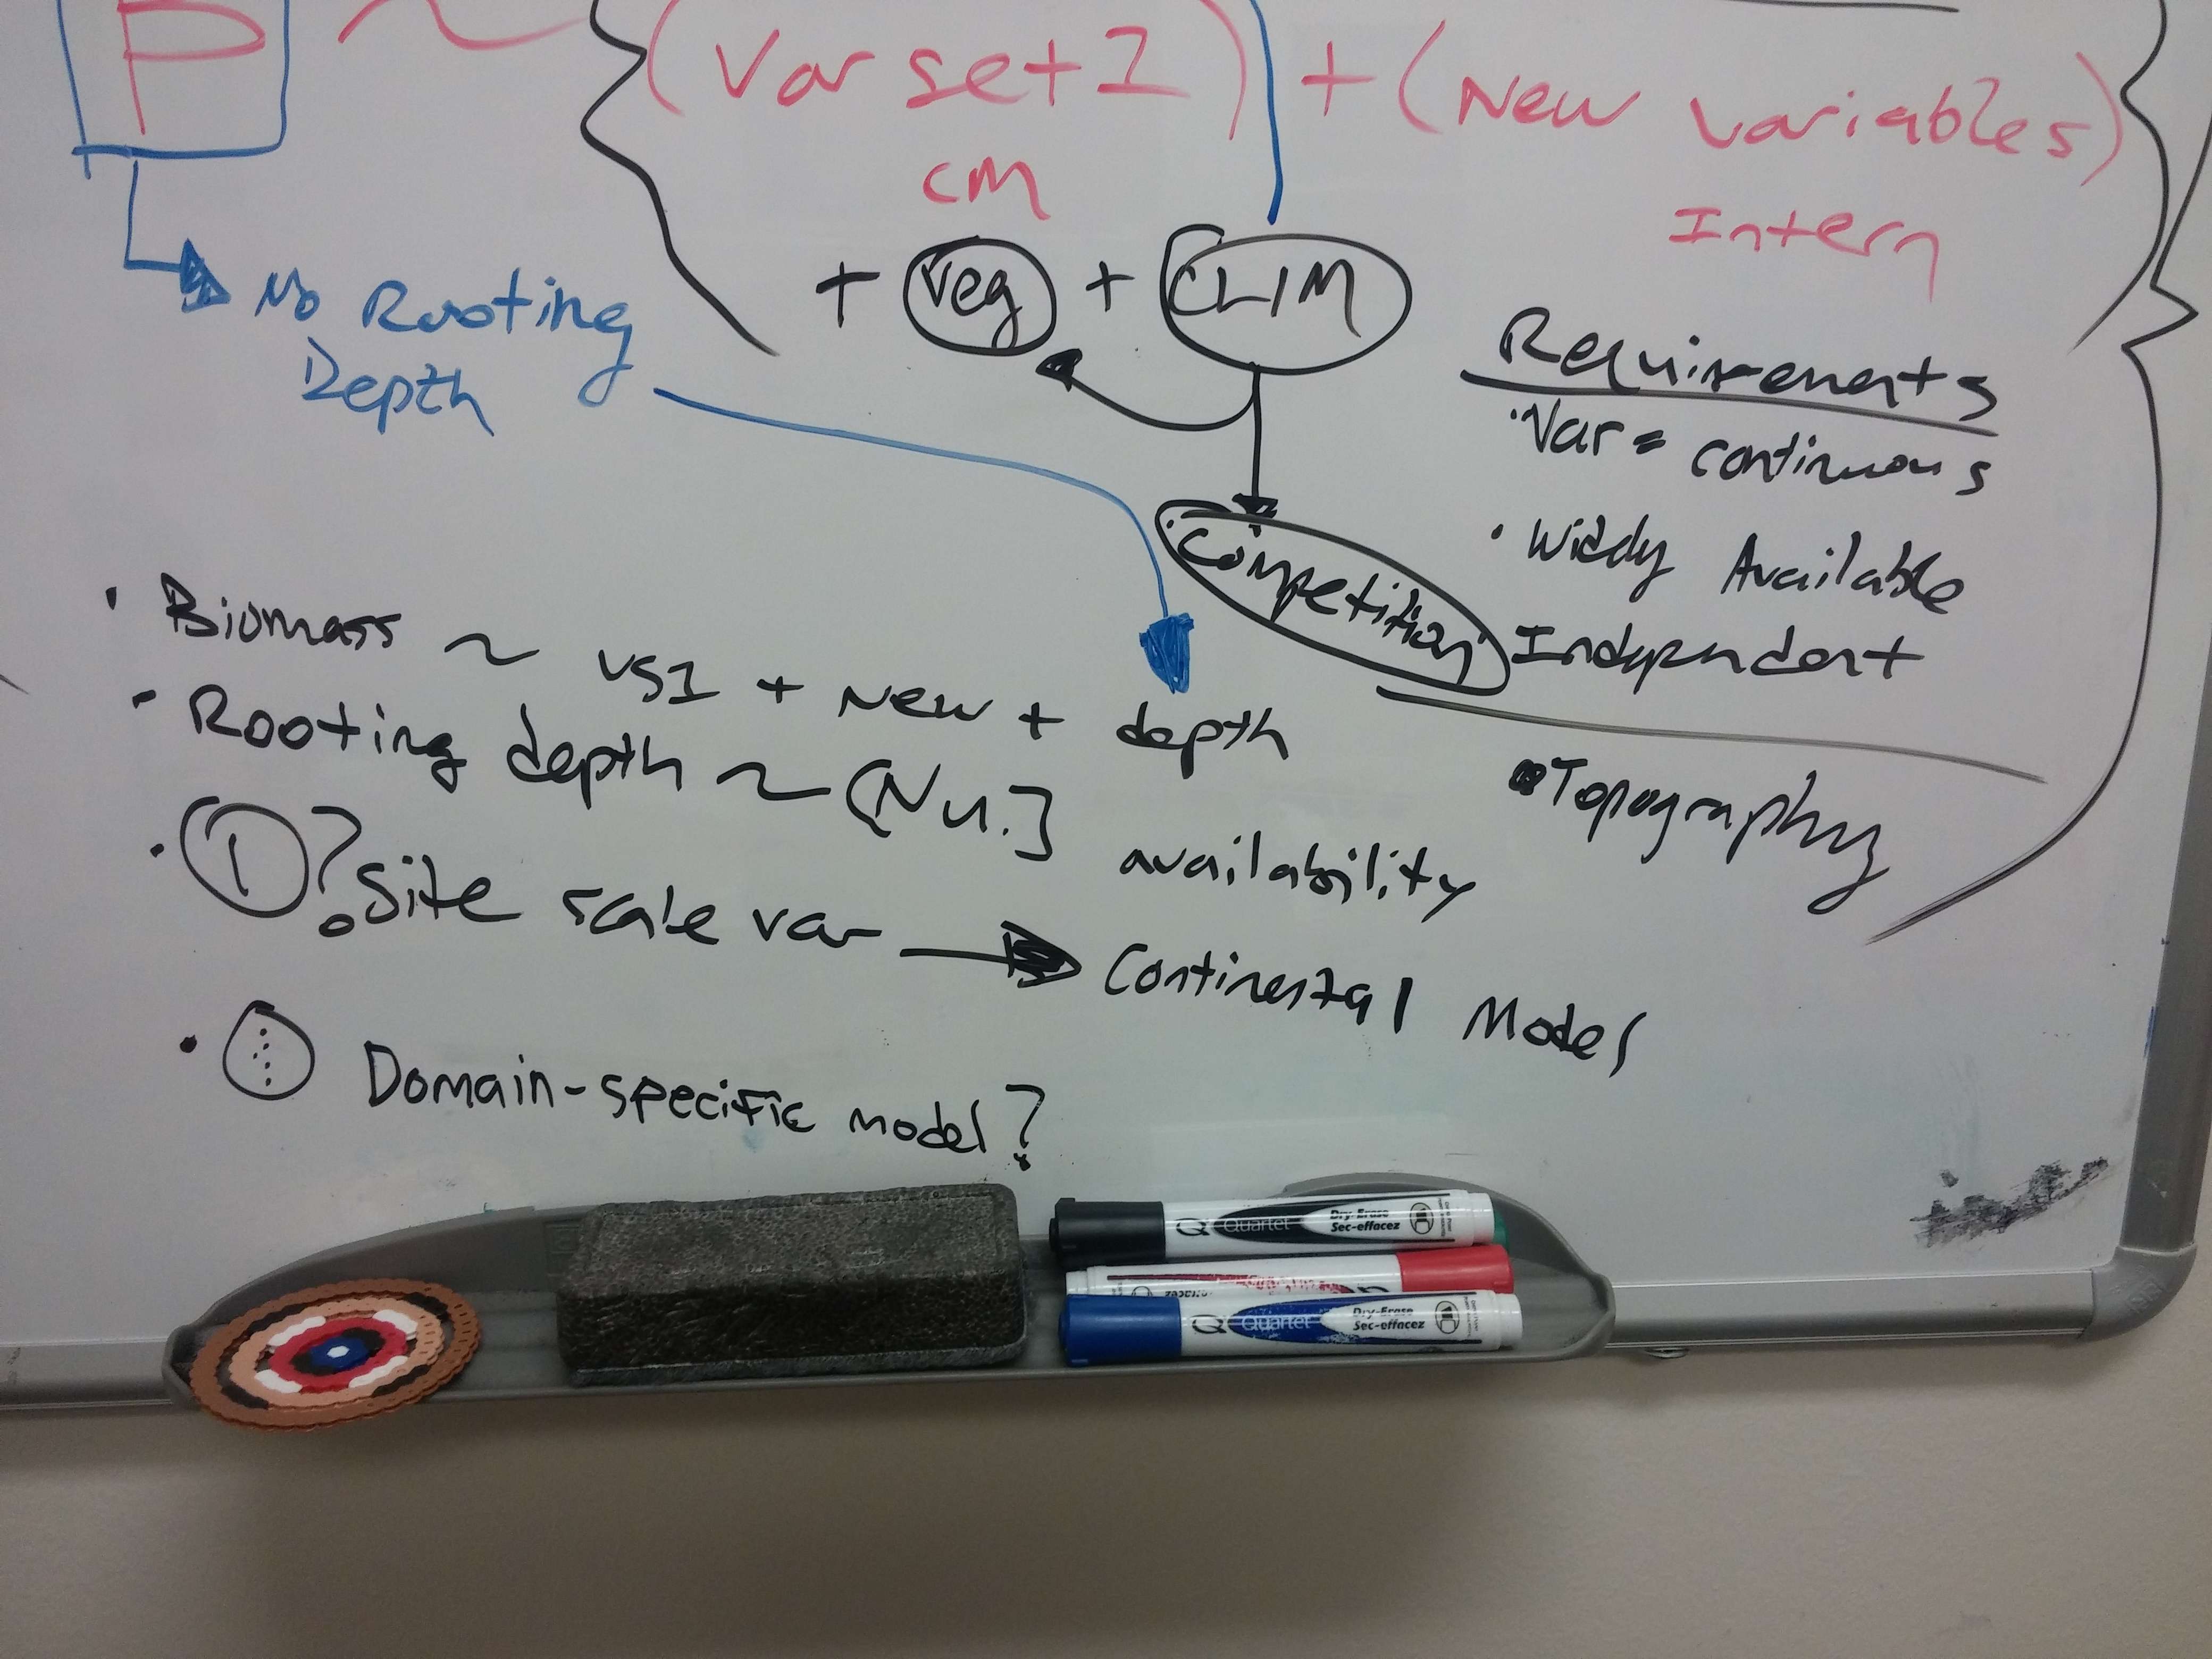 P ~ (Var set 1) + (New variables)
CM
Intern
+ Veg + CLIM
No Rooting
Depth
Requirements
· Var = continuous
· Widely Available
Independent
Competition
· Topography
· Biomass ~ VS1 + New + depth
· Rooting depth ~ (Nu.] availability
· 1 ? Site scale var → Continental Model
· Domain-specific model?
Quartet
Dry-Erase
Sec-effacez
Quartet
Dry-Erase
Sec-effacez